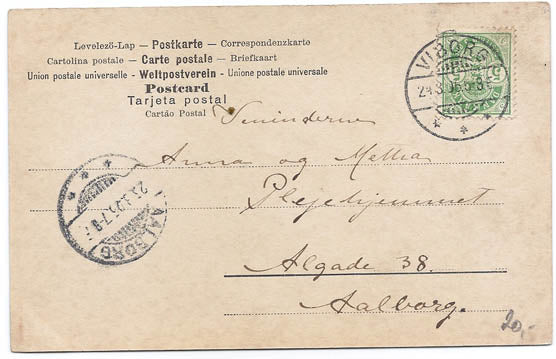 Levelező-Lap — Postkarte — Correspondenzkarte
Cartolina postale — Carte postale — Briefkaart
Union postale universelle — Weltpostverein — Unione postale universale
Postcard
Tarjeta postal
Cartão Postal
VIBORG
5
5
Veninderne
Anna og Metha
Plejehjemmet
AALBORG
Algade 38.
Aalborg.
20,-